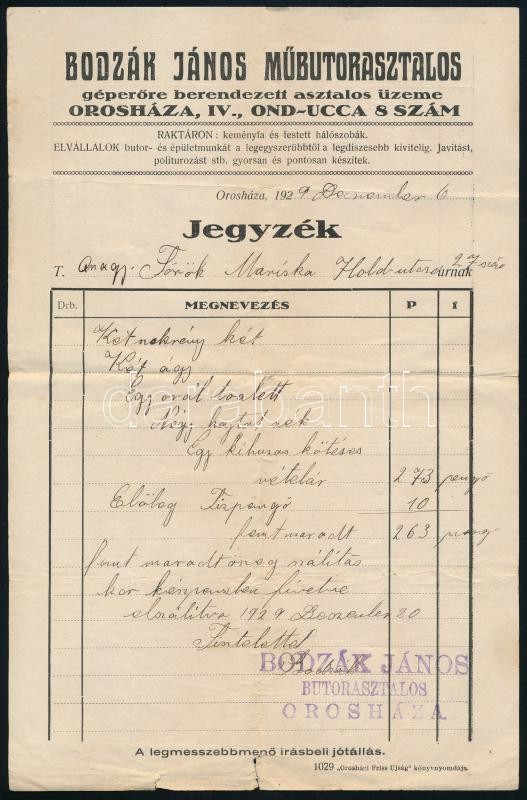 BODZÁK JÁNOS MŰBUTORASZTALOS
géperőre berendezett asztalos üzeme
OROSHÁZA, IV., OND-UCCA 8 SZÁM
RAKTÁRON: keményfa és festett hálószobák.
ELVÁLLALOK butor- és épületmunkát a legegyszerübbtől a legdiszesebb kivitelig. Javitást,
politurozást stb. gyorsan és pontosan készitek.
Orosháza, 1929 December 6
Jegyzék
T. Török Mariska Hold-utca úrnak 27 szá
Drb. MEGNEVEZÉS P f
két
Két ágy
Egy ovál toalett
Négy
Egy kihuzos
vételár 273 pengő
Előleg Tizpengő 10
fent maradt 263 pengő
fent maradt
kor készpénzben fizetve
1929 20
Tisztelettel
Bodzák
BODZÁK JÁNOS
BUTORASZTALOS
OROSHÁZA
darabanth
A legmesszebbmenő irásbeli jótállás.
1029 „Orosházi Friss Ujság" könyvnyomdája.